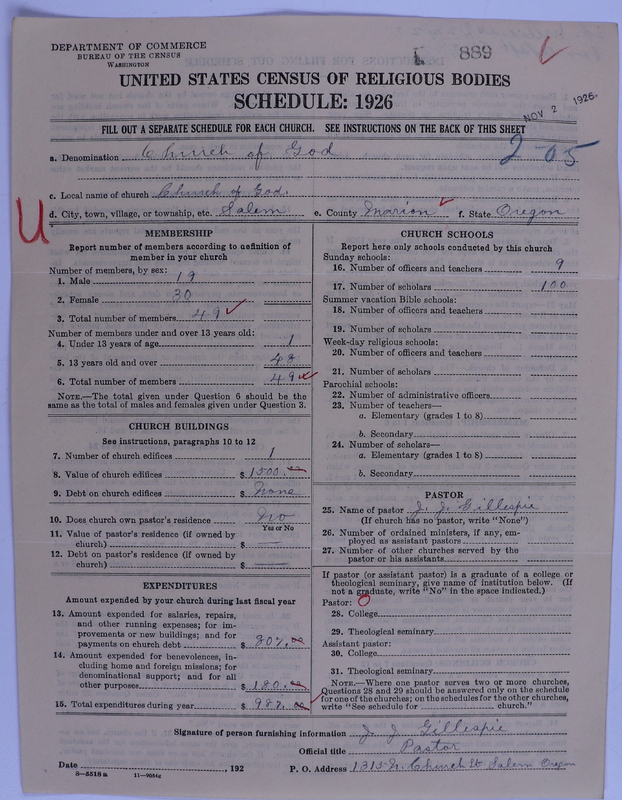 DEPARTMENT OF COMMERCE
BUREAU OF THE CENSUS
WASHINGTON
889
UNITED STATES CENSUS OF RELIGIOUS BODIES
SCHEDULE: 1926
NOV 2 1926
FILL OUT A SEPARATE SCHEDULE FOR EACH CHURCH. SEE INSTRUCTIONS ON THE BACK OF THIS SHEET
2-05
a. Denomination Church of God
c. Local name of church Church of God.
U
d. City, town, village, or township, etc. Salem e. County Marion f. State Oregon
MEMBERSHIP
Report number of members according to definition of
member in your church
Number of members, by sex:
1. Male 19
2. Female 30
3. Total number of members 49
Number of members under and over 13 years old:
4. Under 13 years of age 1
5. 13 years old and over 48
6. Total number of members 49
NOTE.—The total given under Question 6 should be
same as the total of males and females given under Question 3.
CHURCH BUILDINGS
See instructions, paragraphs 10 to 12
7. Number of church edifices 1
8. Value of church edifices $ 1500.00
9. Debt on church edifices $ None
10. Does church own pastor's residence No
Yes or No
11. Value of pastor's residence (if owned by
church) $ —
12. Debt on pastor's residence (if owned by
church) $ —
EXPENDITURES
Amount expended by your church during last fiscal year
13. Amount expended for salaries, repairs,
and other running expenses; for im-
provements or new buildings; and for
payments on church debt $ 807.00
14. Amount expended for benevolences, in-
cluding home and foreign missions; for
denominational support; and for all
other purposes $ 180.00
15. Total expenditures during year $ 987.00
CHURCH SCHOOLS
Report here only schools conducted by this church
Sunday schools:
16. Number of officers and teachers 9
17. Number of scholars 100
Summer vacation Bible schools:
18. Number of officers and teachers
19. Number of scholars
Week-day religious schools:
20. Number of officers and teachers
21. Number of scholars
Parochial schools:
22. Number of administrative officers
23. Number of teachers—
a. Elementary (grades 1 to 8)
b. Secondary
24. Number of scholars—
a. Elementary (grades 1 to 8)
b. Secondary
PASTOR
25. Name of pastor J. J. Gillespie
(If church has no pastor, write "None")
26. Number of ordained ministers, if any, em-
ployed as assistant pastors
27. Number of other churches served by the
pastor or his assistants
If pastor (or assistant pastor) is a graduate of a college or
theological seminary, give name of institution below. (If
not a graduate, write "No" in the space indicated.)
Pastor: O
28. College
29. Theological seminary
Assistant pastor:
30. College
31. Theological seminary
NOTE.—Where one pastor serves two or more churches,
Questions 28 and 29 should be answered only on the schedule
for one of the churches; on the schedules for the other churches,
write "See schedule for church."
Signature of person furnishing information J. J. Gillespie
Official title Pastor
Date , 192 P. O. Address 1315 N. Church St Salem Oregon
8—5518 a 11—9054g